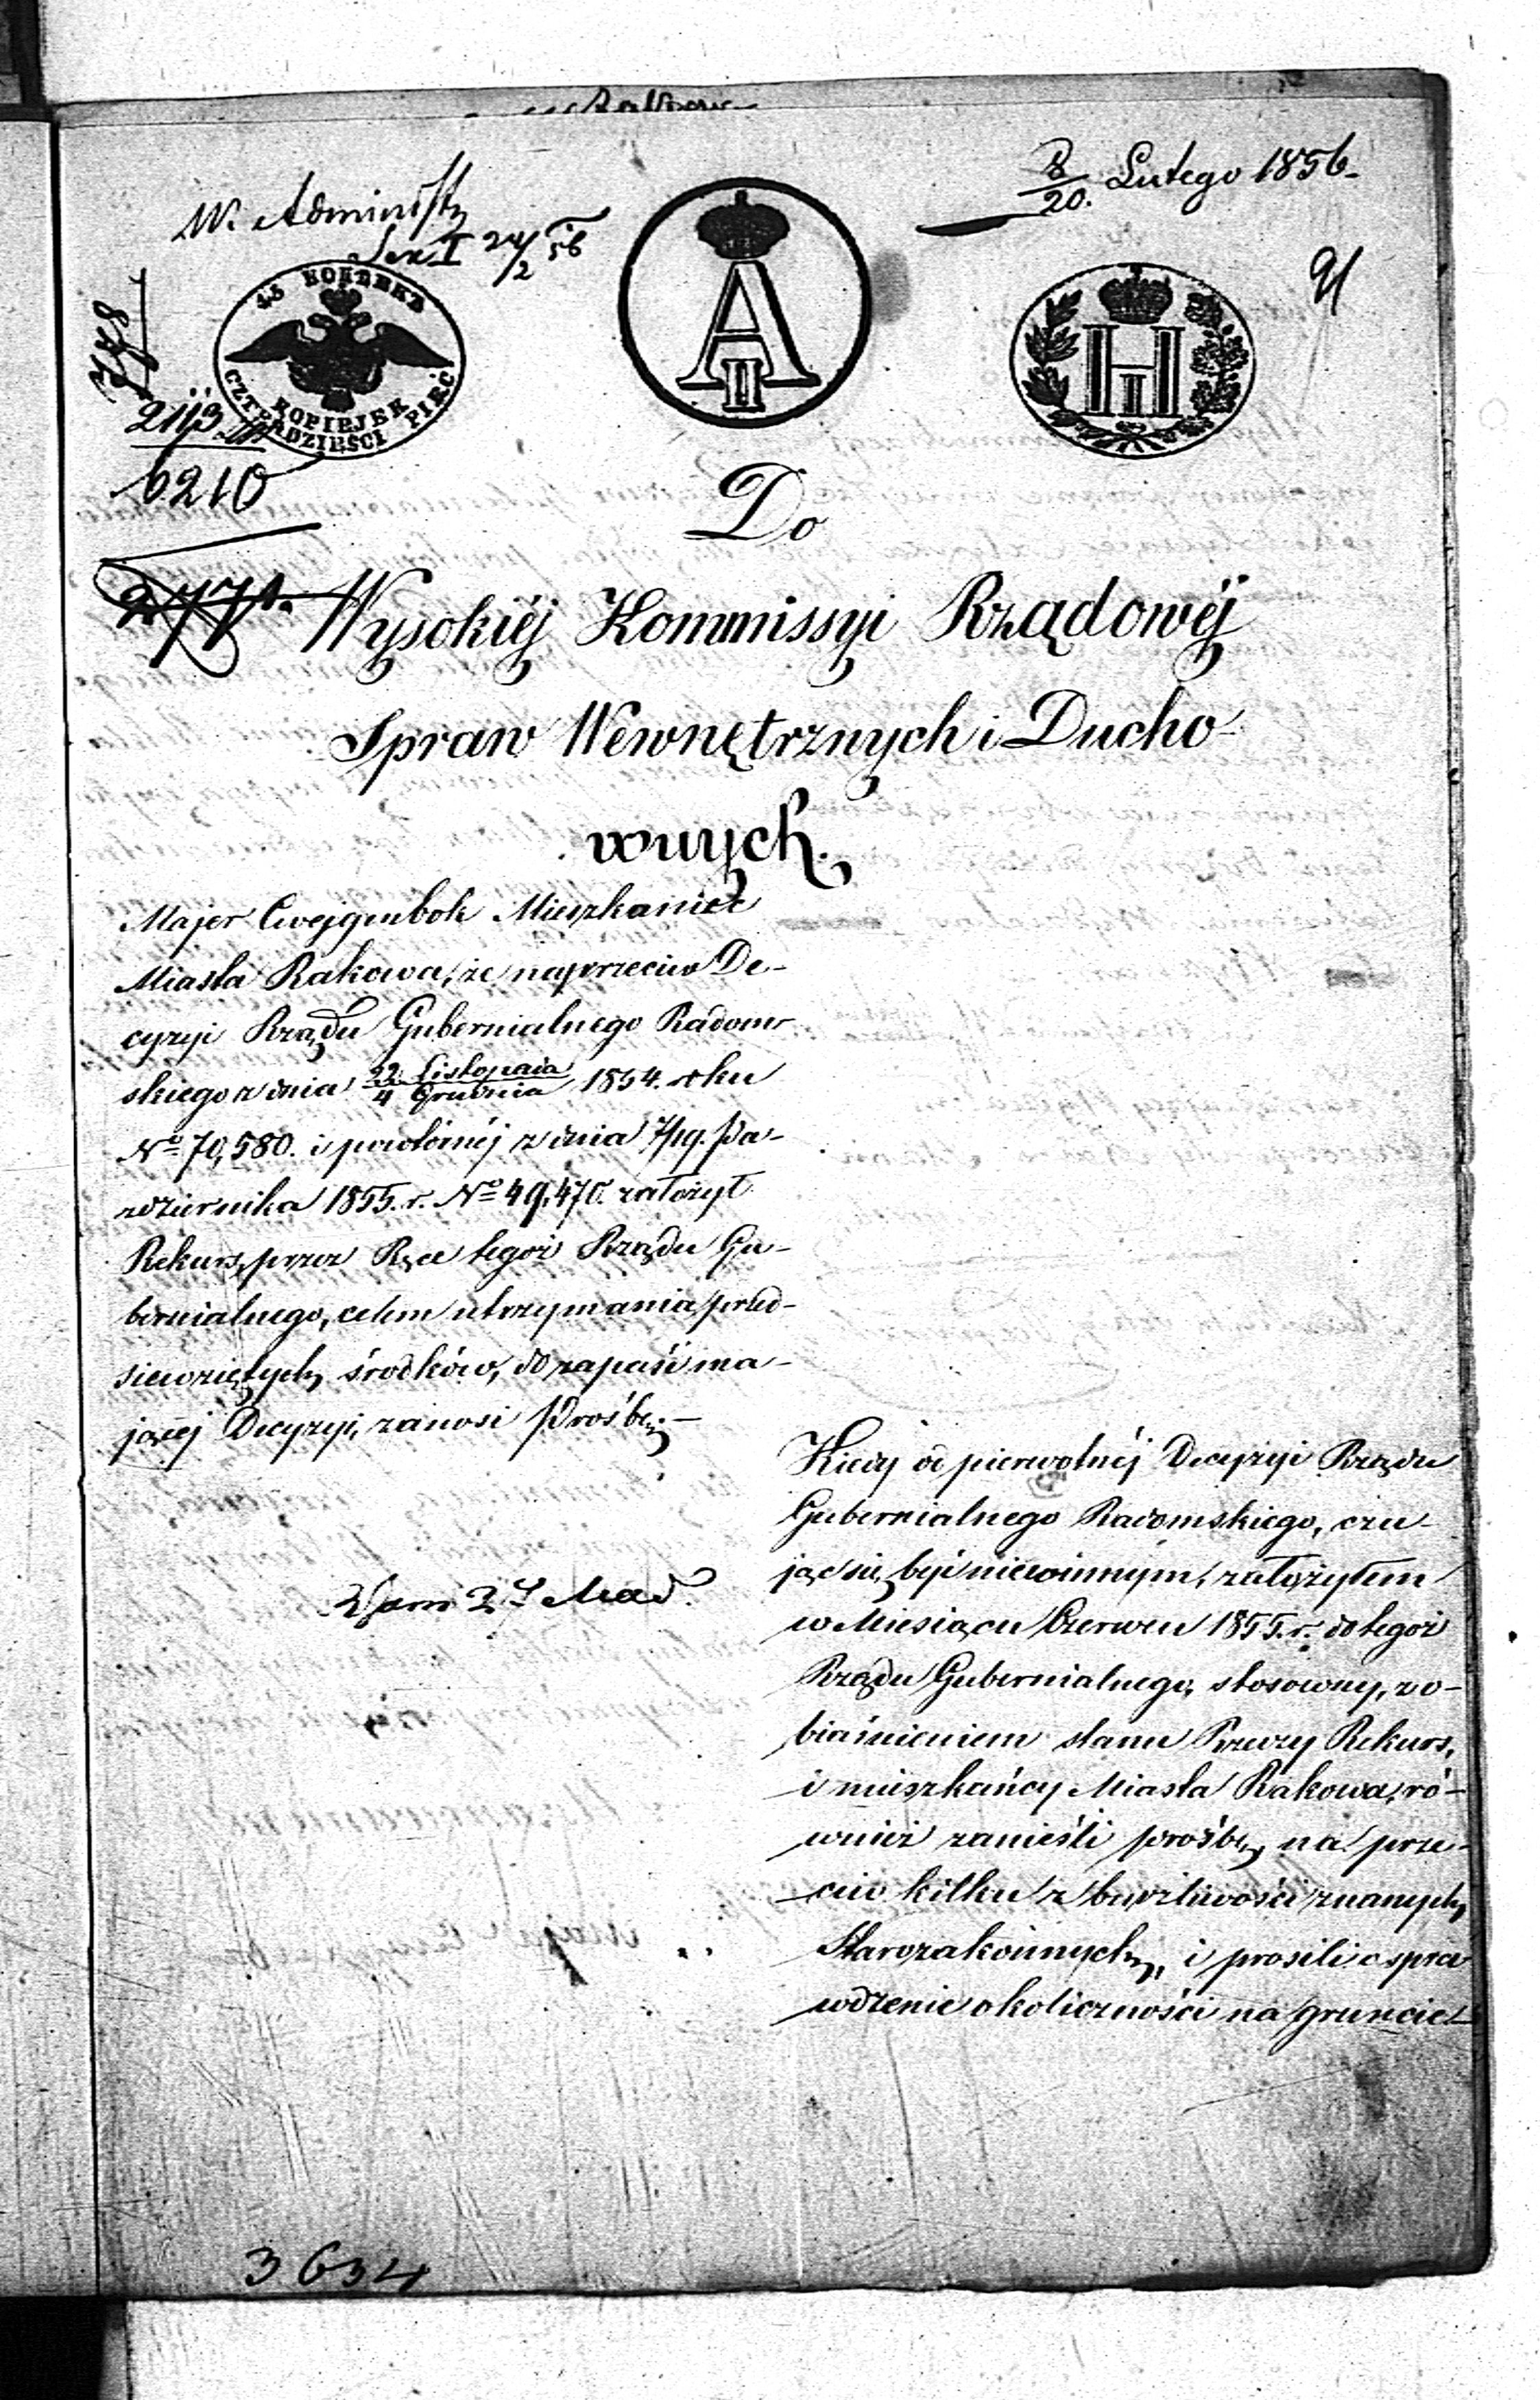 8/20. Lutego 1856.
W. Administr
Sek. I 24/2 56
91
45 КОПѢЕКЪ
KOPIEJEK
CZTERDZIEŚCI PIĘĆ
A II
H I
2113
6210
Do
Wysokiéj Kommissyi Rządowéj
Spraw Wewnętrznych i Ducho-
wnych.
Majer Cwejgenbok Mieszkaniec
Miasta Rakowa, że naprzeciw De-
cyzyi Rządu Gubernialnego Radom-
skiego z dnia 22 Listopada/4 Grudnia 1854. roku
No 70,580. i powtórnéj z dnia 7/19. Pa-
zdziernika 1855. r. No 49,470. założył
Rekurs, przez Ręce tegoż Rządu Gu-
bernialnego, celem utrzymania przed-
siewziętych środków, do zapaśi ma-
jącéj Decyzyi, zanosi Prośbę.-
Kiedy od pierwotnéj Decyzyi Rządu
Gubernialnego Radomskiego, czu-
jąc się być niewinnym, założyłem
w Miesiącu Czerwcu 1855. r. do tegoż
Rządu Gubernialnego, stosowny, z o-
biaśnieniem stanu Rzeczy Rekurs,
i mieszkańcy Miasta Rakowa, ró-
wnież zanieśli prośbę, na prze-
ciw kilku z burzliwości znanych,
Starozakonnych, i prosili o spra
wdzenie okoliczności na gruncie
3634